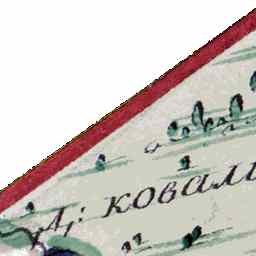 Д: ковали